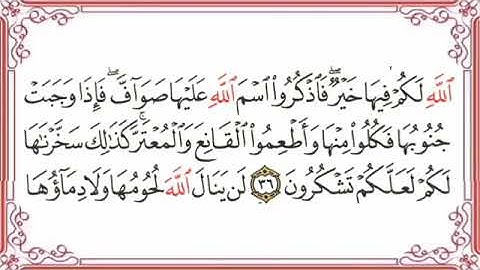 ٱللَّهِ لَكُمْ فِيهَا خَيْرٌ ۖ فَٱذْكُرُوا۟ ٱسْمَ ٱللَّهِ عَلَيْهَا صَوَآفَّ ۖ فَإِذَا وَجَبَتْ
جُنُوبُهَا فَكُلُوا۟ مِنْهَا وَأَطْعِمُوا۟ ٱلْقَانِعَ وَٱلْمُعْتَرَّ ۚ كَذَٰلِكَ سَخَّرْنَٰهَا
لَكُمْ لَعَلَّكُمْ تَشْكُرُونَ ٣٦ لَن يَنَالَ ٱللَّهَ لُحُومُهَا وَلَا دِمَآؤُهَا